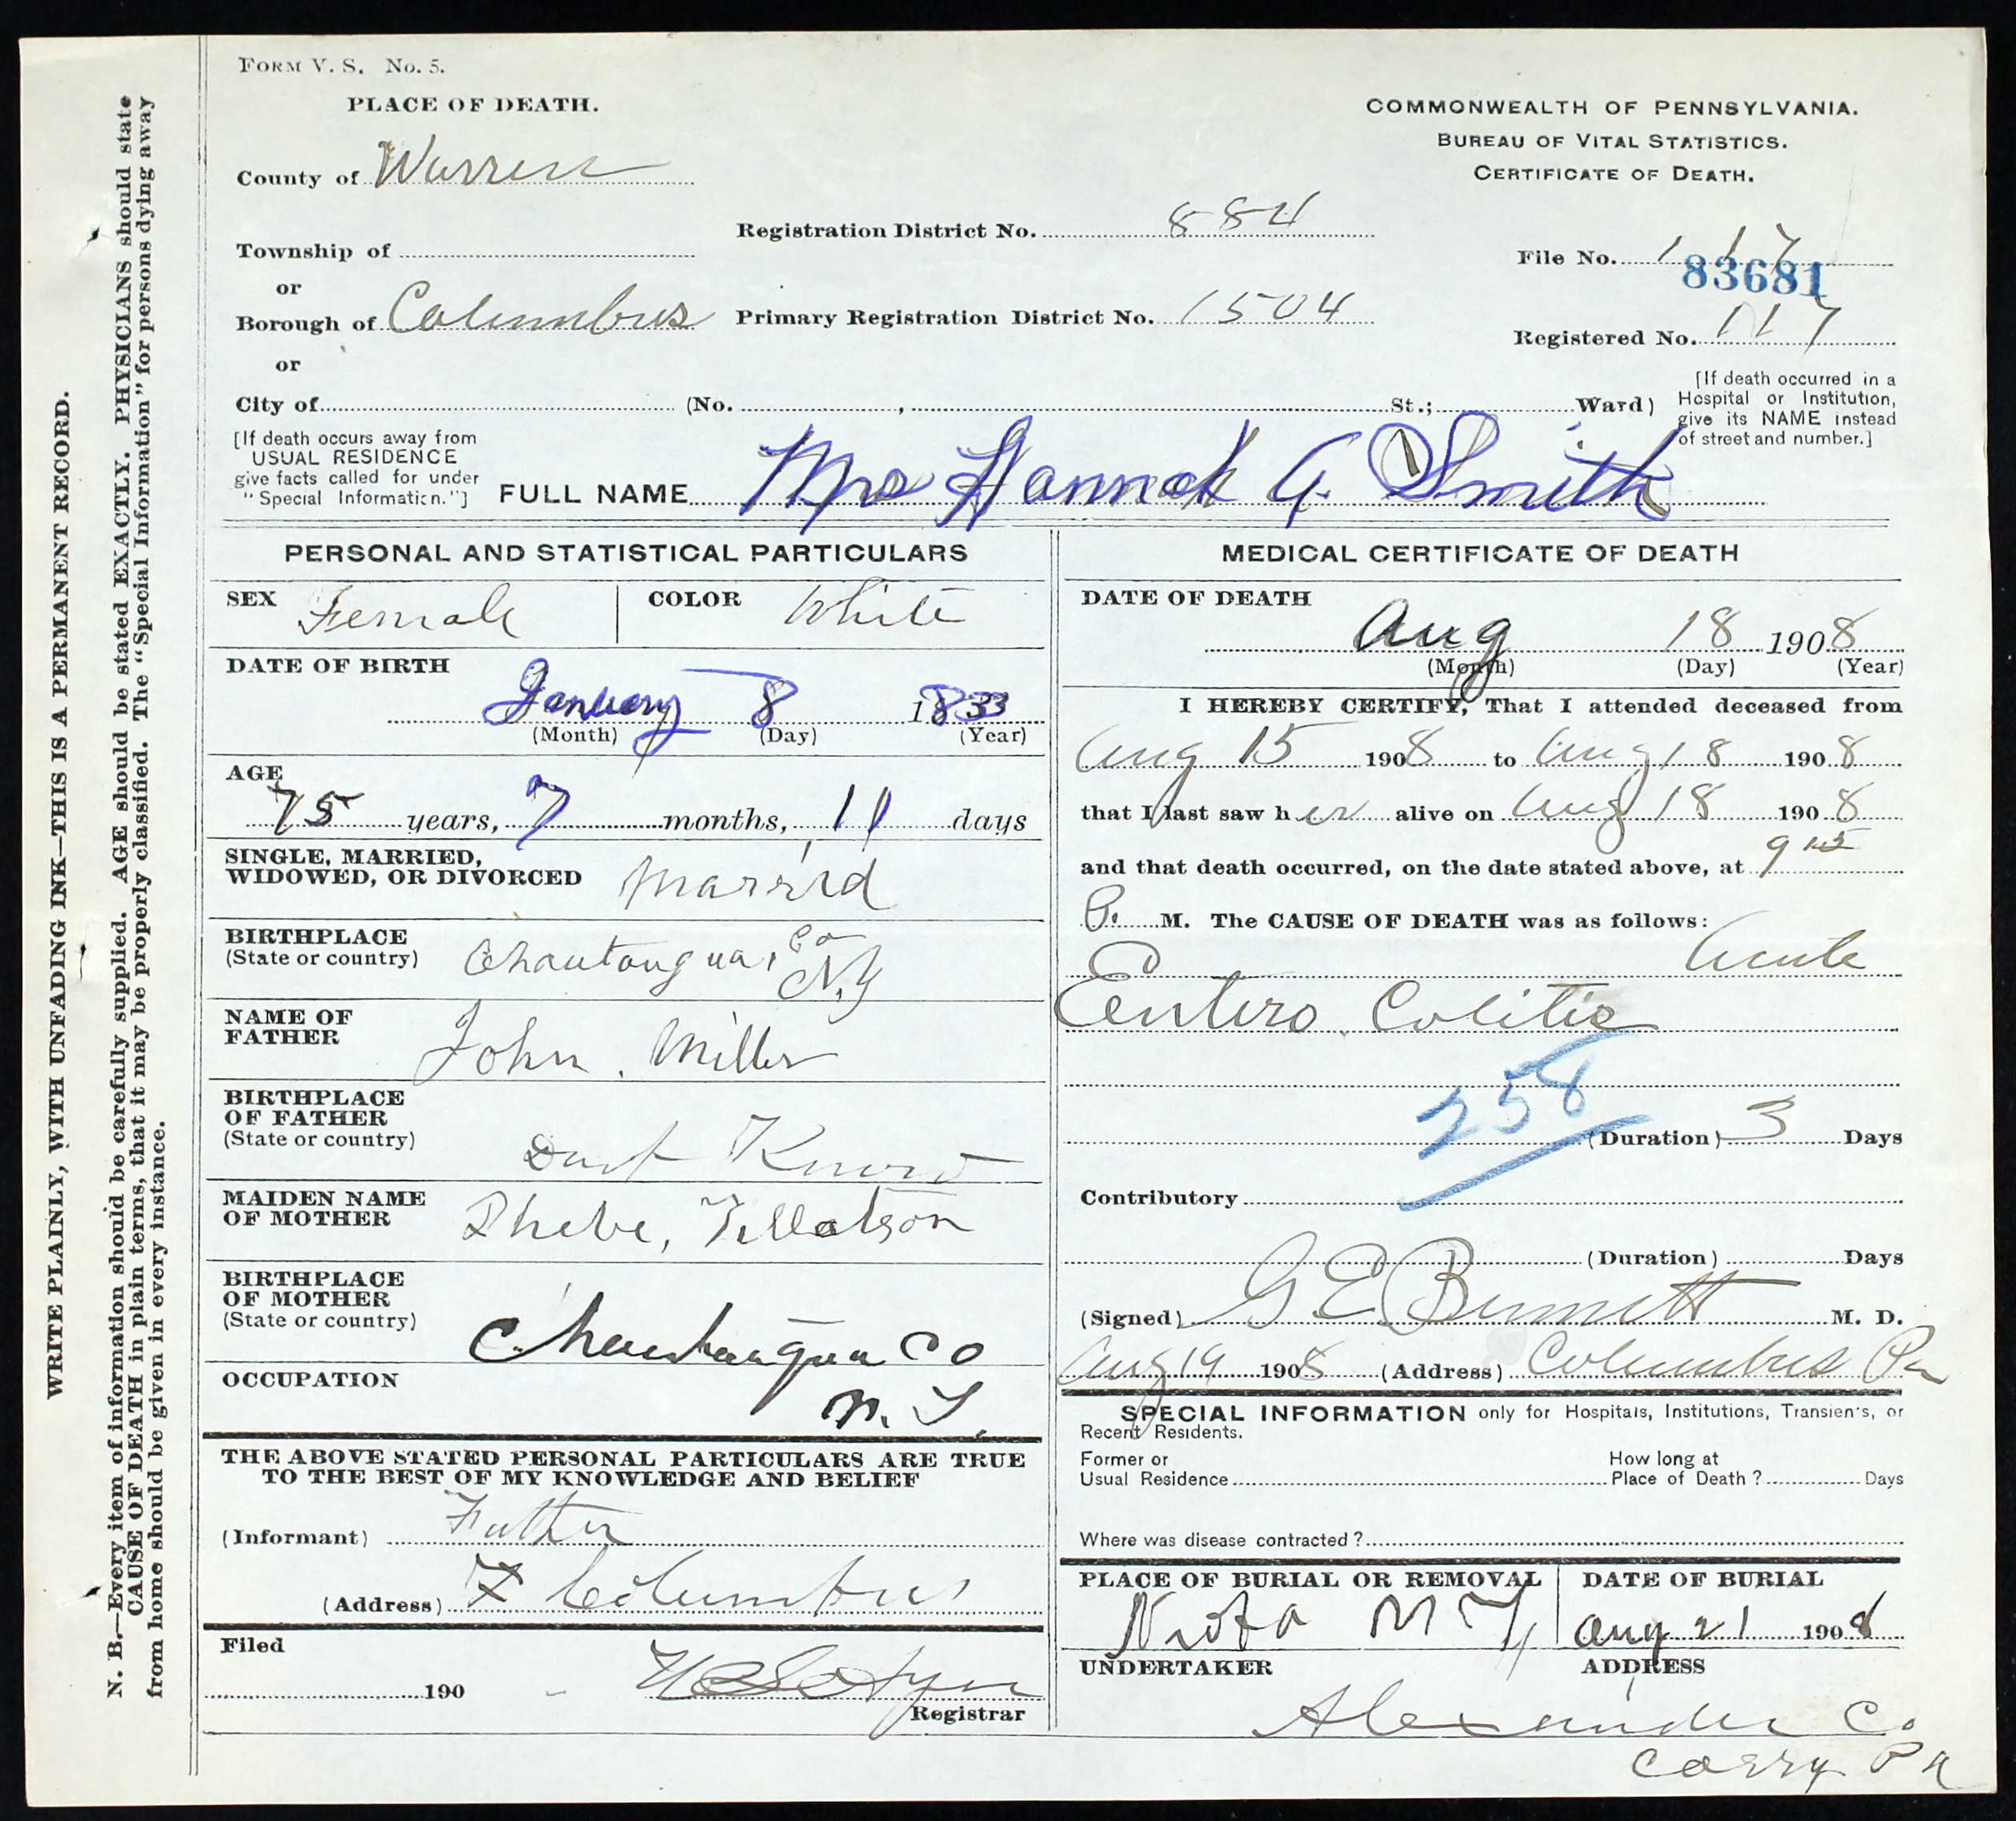 FORM V. S. No. 5.
PLACE OF DEATH.
COMMONWEALTH OF PENNSYLVANIA.
BUREAU OF VITAL STATISTICS.
CERTIFICATE OF DEATH.
County of Warren
Township of
or
Borough of Columbus
or
City of (No. , St.; Ward)
Registration District No. 884
Primary Registration District No. 1504
File No. 117
83681
Registered No. 117
[If death occurred in a
Hospital or Institution,
give its NAME instead
of street and number.]
[If death occurs away from
USUAL RESIDENCE
give facts called for under
"Special Information."]
FULL NAME Mrs Hannah A. Smith
PERSONAL AND STATISTICAL PARTICULARS
SEX Female COLOR White
DATE OF BIRTH
January 8 1833
(Month) (Day) (Year)
AGE
75 years, 7 months, 11 days
SINGLE, MARRIED,
WIDOWED, OR DIVORCED Married
BIRTHPLACE
(State or country) Chautauqua, Co
N.Y
NAME OF
FATHER John Miller
BIRTHPLACE
OF FATHER
(State or country) Dont Know
MAIDEN NAME
OF MOTHER Phebe, Tillotson
BIRTHPLACE
OF MOTHER
(State or country) Chautauqua Co
N. Y.
OCCUPATION
THE ABOVE STATED PERSONAL PARTICULARS ARE TRUE
TO THE BEST OF MY KNOWLEDGE AND BELIEF
(Informant) Father
(Address) Columbus
Filed
190
Registrar
MEDICAL CERTIFICATE OF DEATH
DATE OF DEATH
Aug 18 1908
(Month) (Day) (Year)
I HEREBY CERTIFY, That I attended deceased from
Aug 15 1908 to Aug 18 1908
that I last saw her alive on Aug 18 1908
and that death occurred, on the date stated above, at 9
P. M. The CAUSE OF DEATH was as follows:
Acute
Entero Colitis
258
(Duration) 3 Days
Contributory
(Duration) Days
(Signed) G. E. Bennett M. D.
Aug 19 1908 (Address) Columbus Pa
SPECIAL INFORMATION only for Hospitals, Institutions, Transients, or
Recent Residents.
Former or
Usual Residence
How long at
Place of Death? Days
Where was disease contracted?
PLACE OF BURIAL OR REMOVAL
N Y
DATE OF BURIAL
Aug 21 1908
UNDERTAKER
ADDRESS
Alexander Co.
Corry Pa
WRITE PLAINLY, WITH UNFADING INK—THIS IS A PERMANENT RECORD.
N. B.—Every item of information should be carefully supplied. AGE should be stated EXACTLY. PHYSICIANS should state
CAUSE OF DEATH in plain terms, that it may be properly classified. The "Special Information" for persons dying away
from home should be given in every instance.